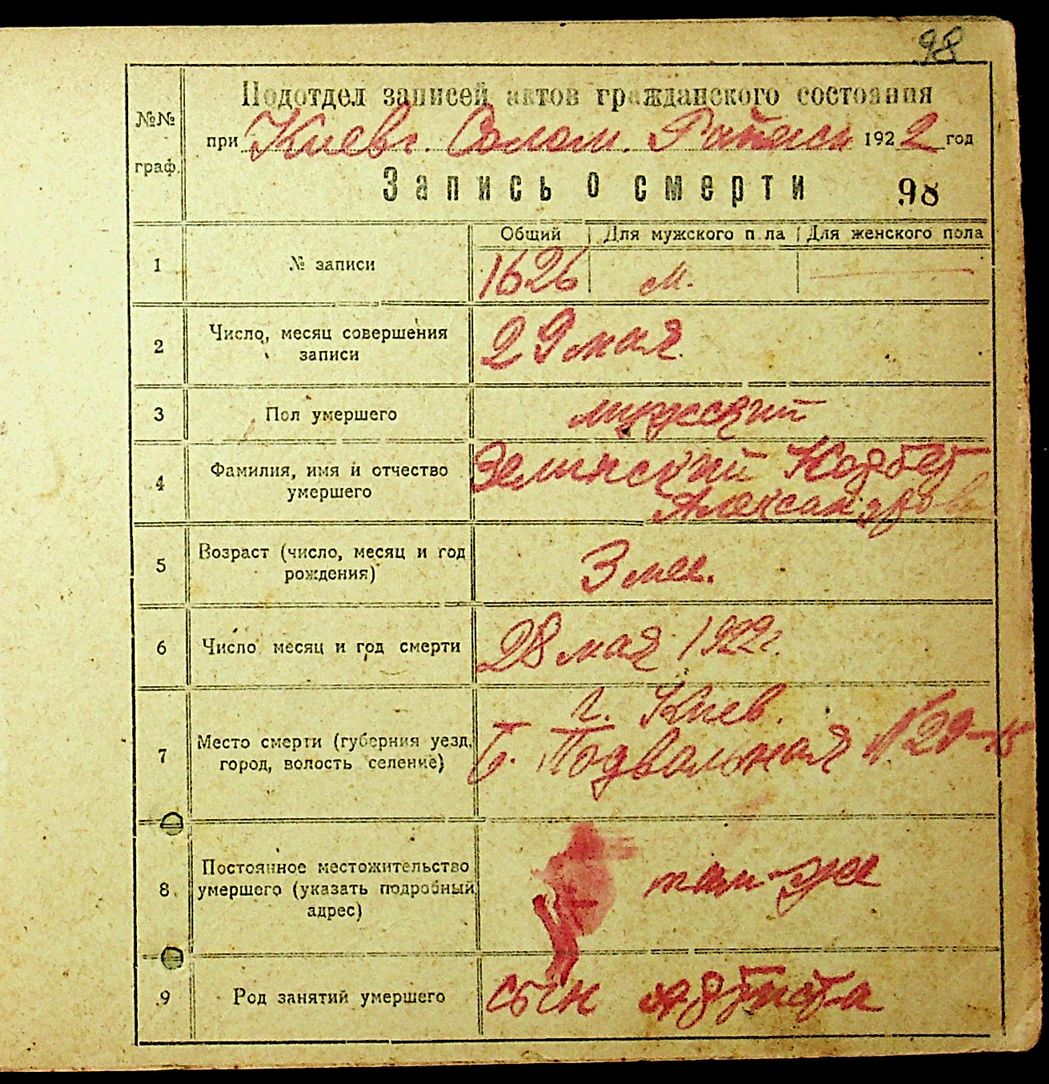 98
Подотдел записей актов гражданского состояния
№№ граф.
при Киевг. Солом. 1922 год
Запись о смерти 98
Общий Для мужского пола Для женского пола
1 № записи 1626 м. —
2 Число, месяц совершения записи 29 мая
3 Пол умершего мужской
4 Фамилия, имя и отчество умершего Зелинский Норберт
Александров
5 Возраст (число, месяц и год рождения) 3 мес.
6 Число месяц и год смерти 28 мая 1922 г.
7 Место смерти (губерния уезд, город, волость селение) г. Киев.
Б. Подвальная №29-15
8 Постоянное местожительство умершего (указать подробный адрес) там-же
9 Род занятий умершего сын артиста